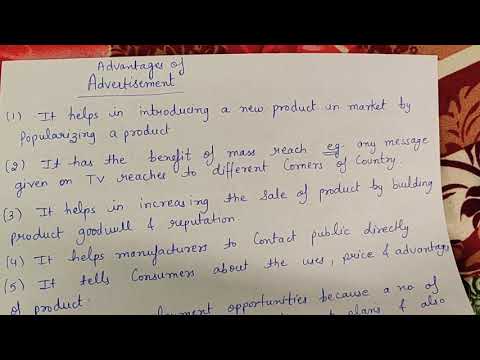 Advantages of
Advertisement
(1) It helps in introducing a new product in market by
Popularizing a product
(2) It has the benefit of mass reach eg. any message
given on TV reaches to different Corners of Country.
(3) It helps in increasing the sale of product by building
product goodwill & reputation.
(4) It helps manufacturers to Contact public directly
(5) It tells Consumers about the uses, price & advantages
of product.
opportunities because a no of
plans & also